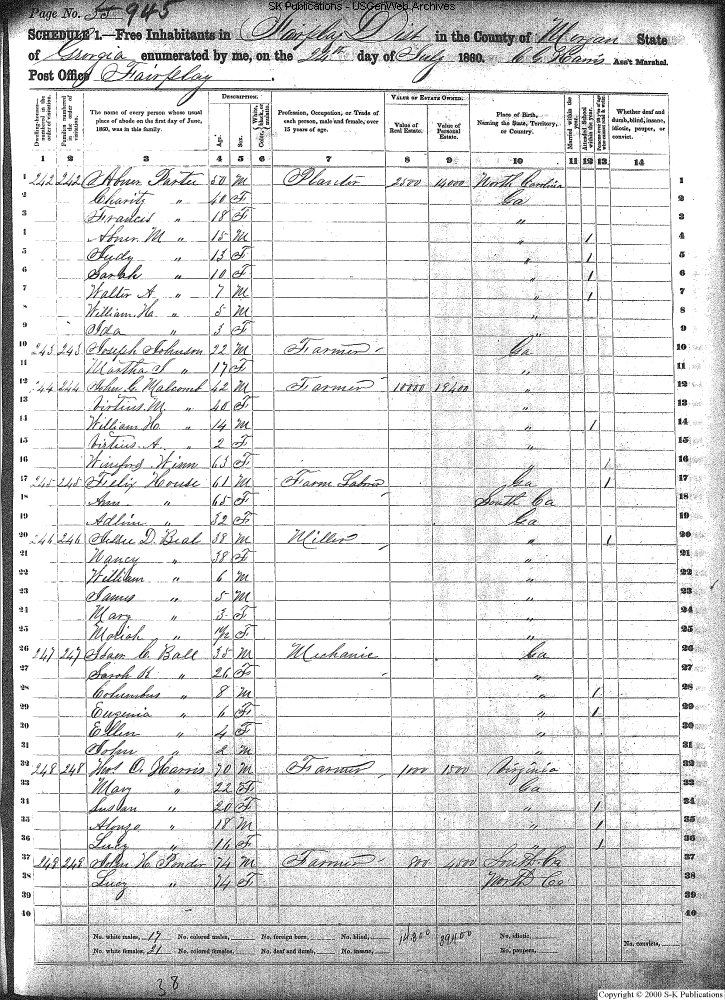 SK Publications - USGenWeb Archives
Page No. 55 945
SCHEDULE 1.—Free Inhabitants in Fairplay Dist in the County of Morgan State
of Georgia enumerated by me, on the 24th day of July 1860. C G Harris Ass't Marshal.
Post Office Fairplay
Dwelling-houses—numbered in the order of visitation.
Families numbered in the order of visitation.
The name of every person whose usual place of abode on the first day of June, 1860, was in this family.
DESCRIPTION.
Age.
Sex.
Color, White, black, or mulatto.
Profession, Occupation, or Trade of each person, male and female, over 15 years of age.
VALUE OF ESTATE OWNED.
Value of Real Estate.
Value of Personal Estate.
Place of Birth, Naming the State, Territory, or Country.
Married within the year.
Attended School within the year.
Whether deaf and dumb, blind, insane, idiotic, pauper, or convict.
1 2 3 4 5 6 7 8 9 10 11 12 13 14
1 242 242 Abner Partee 50 M Planter 2500 14000 North Carolina 1
2 Charity " 40 F Ga 2
3 Frances " 18 F " 3
4 Abner M " 15 M " / 4
5 Judy " 13 F " / 5
6 Sarah " 10 F " / 6
7 Walter A " 7 M " / 7
8 William Ha " 5 M " 8
9 Ida " 3 F " 9
10 243 243 Joseph Johnson 22 M Farmer Ga 10
11 Martha J " 17 F " 11
12 244 244 John C Malcomb 42 M Farmer 10000 19400 " 12
13 Virtius M " 40 F " 13
14 William H " 14 M " / 14
15 Virtius A " 2 F " 15
16 Winiford Winn 63 F " / 16
17 245 245 Felix House 61 M Farm Labor Ga / 17
18 Ann " 65 F South Ca 18
19 Adline " 32 F Ga 19
20 246 246 D. Beal 38 M Miller " / 20
21 Nancy " 38 F " 21
22 William " 6 M " 22
23 James " 5 M " 23
24 Mary " 3 F " 24
25 Moriah " F " 25
26 247 247 C Ball 35 M Mechanic Ga 26
27 Sarah R " 26 F " 27
28 Columbus " 8 M " / 28
29 Eugenia " 6 F " / 29
30 Ellen " 4 F " 30
31 John " 2 M " 31
32 248 248 Thos O. Harris 70 M Farmer 1000 1500 Virginia 32
33 Mary " 22 F Ga 33
34 Susan " 20 F " / 34
35 Alonzo " 18 M " / 35
36 Lucy " 16 F " / 36
37 249 249 John H Ponder 74 M Farmer 800 4500 South Ca 37
38 Lucy " 74 F North Ca 38
39 39
40 40
No. white males, 17 No. colored males, No. foreign born, No. blind, No. idiotic,
No. white females, 21 No. colored females, No. deaf and dumb, No. insane, No. paupers, No. convicts,
38
Copyright © 2000 S-K Publications